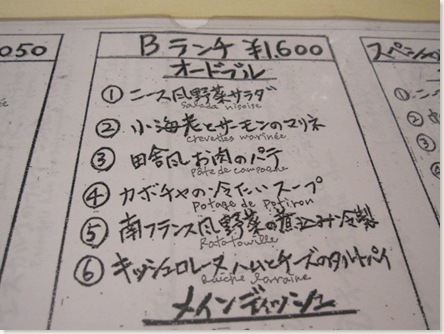 050
Bランチ ¥1,600
スペシャ
オードブル
① ニース風野菜サラダ
Salada nisoise
② 小海老とサーモンのマリネ
Crevettes marinée
③ 田舎風お肉のパテ
Pâte de campagne
④ カボチャの冷たいスープ
Potage de Potiron
⑤ 南フランス風野菜の煮込み冷製
Ratatouille
⑥ キッシュロレーヌ ハムとチーズのタルトパイ
Quiche lorraine
メインディッシュ